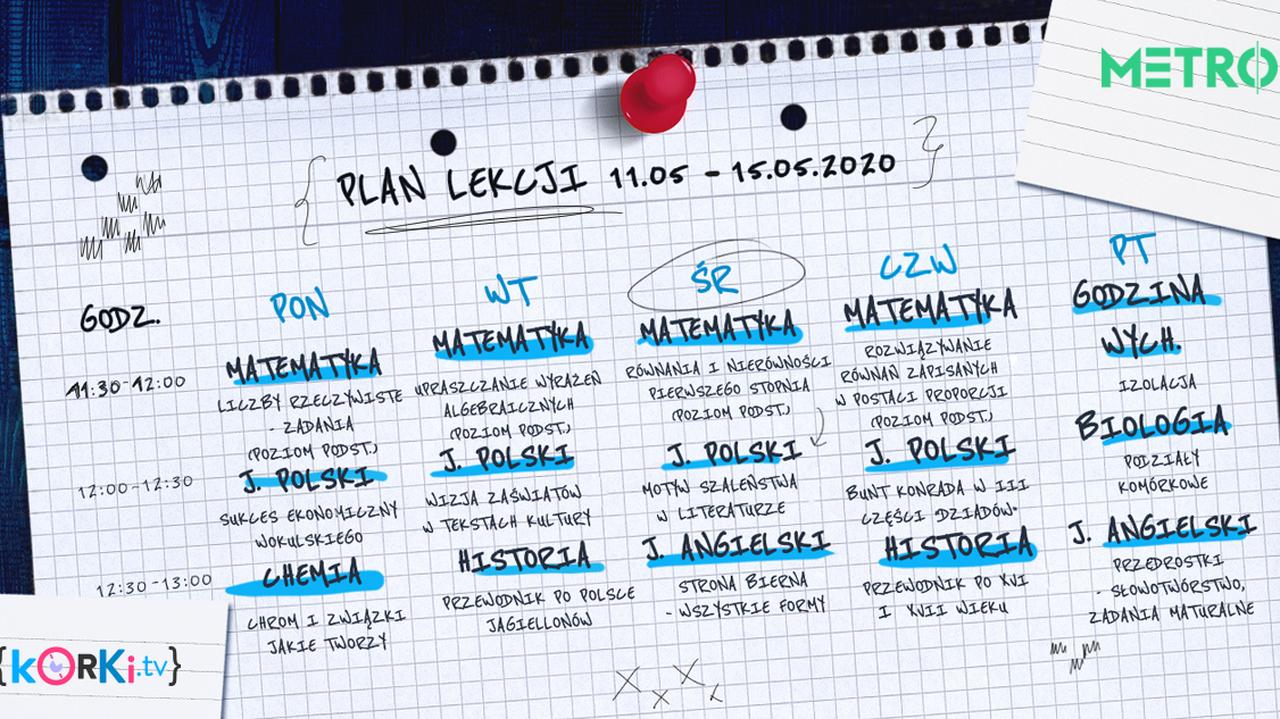 METRO
PLAN LEKCJI 11.05 - 15.05.2020
GODZ.
11:30-12:00
12:00-12:30
12:30-13:00
PON
MATEMATYKA
LICZBY RZECZYWISTE
- ZADANIA
(POZIOM PODST.)
J. POLSKI
SUKCES EKONOMICZNY
WOKULSKIEGO
CHEMIA
CHROM I ZWIĄZKI
JAKIE TWORZY
WT
MATEMATYKA
UPRASZCZANIE WYRAŻEŃ
ALGEBRAICZNYCH
(POZIOM PODST.)
J. POLSKI
WIZJA ZAŚWIATÓW
W TEKSTACH KULTURY
HISTORIA
PRZEWODNIK PO POLSCE
JAGIELLONÓW
ŚR
MATEMATYKA
RÓWNANIA I NIERÓWNOŚCI
PIERWSZEGO STOPNIA
(POZIOM PODST.)
J. POLSKI
MOTYW SZALEŃSTWA
W LITERATURZE
J. ANGIELSKI
STRONA BIERNA
- WSZYSTKIE FORMY
CZW
MATEMATYKA
ROZWIĄZYWANIE
RÓWNAŃ ZAPISANYCH
W POSTACI PROPORCJI
(POZIOM PODST.)
J. POLSKI
BUNT KONRADA W III
CZĘŚCI DZIADÓW.
HISTORIA
PRZEWODNIK PO XVI
I XVII WIEKU
PT
GODZINA
WYCH.
IZOLACJA
BIOLOGIA
PODZIAŁY
KOMÓRKOWE
J. ANGIELSKI
PRZEDROSTKI
- SŁOWOTWÓRSTWO,
ZADANIA MATURALNE
{kORKi.tv}